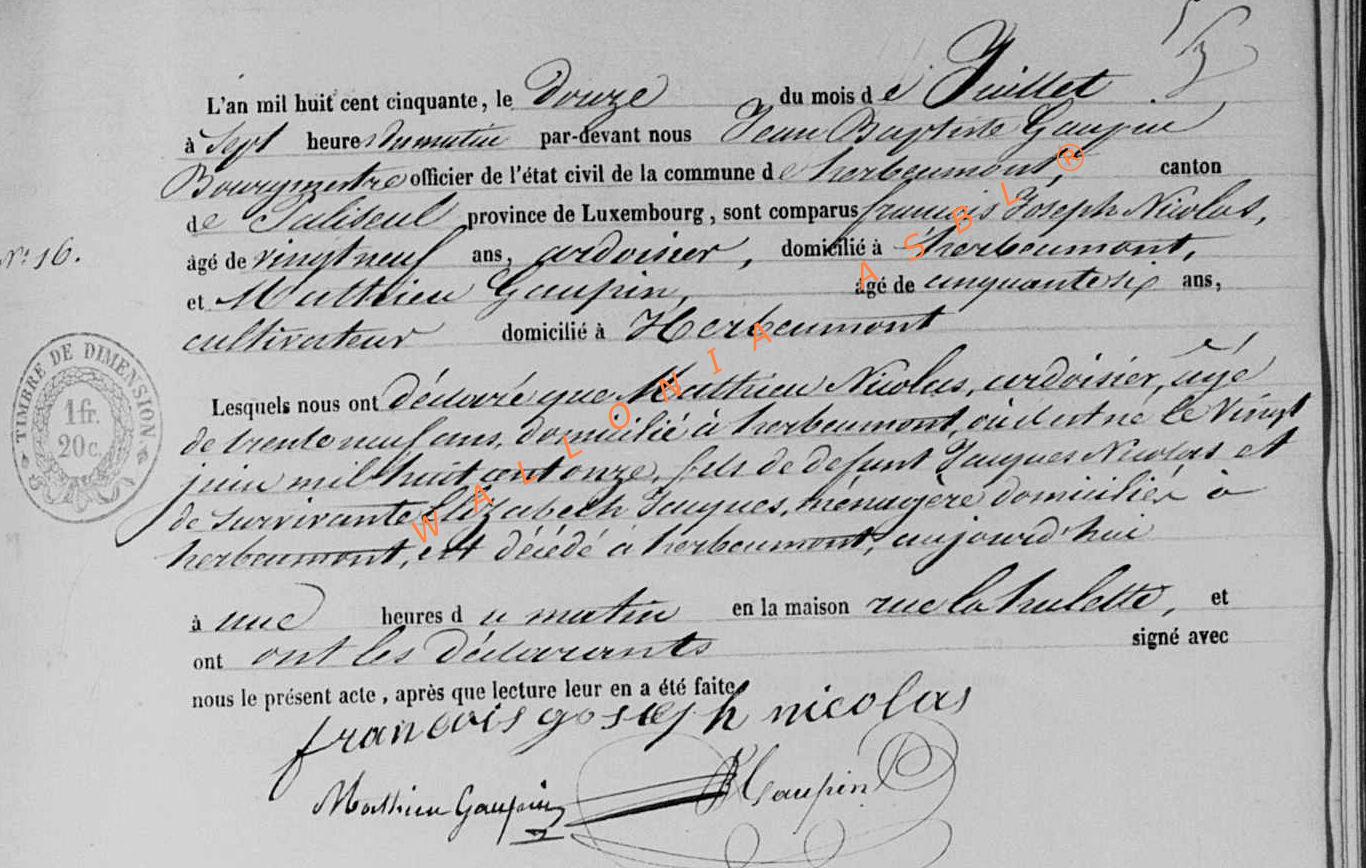 L'an mil huit cent cinquante, le douze du mois de Juillet
à sept heures du matin par-devant nous Jean Baptiste Gaupin
Bourgmestre officier de l'état civil de la commune de herbeumont, canton
de Paliseul province de Luxembourg, sont comparus francois Joseph Nicolas,
N° 16.
âgé de vingt neuf ans, ardoisier, domicilié à herbeumont,
et Mathieu Gaupin, âgé de cinquante six ans,
cultivateur domicilié à Herbeumont
TIMBRE DE DIMENSION
1 fr.
20 c.
Lesquels nous ont déclaré que Mathieu Nicolas, ardoisier, âgé
de trente neuf ans, domicilié à herbeumont, où il est né le Vingt
juin mil huit cent onze, fils de defunt Jacques Nicolas et
de survivante Elizabeth Jacques, ménagère domiciliée à
herbeumont, est décédé à herbeumont, aujourd'hui
à une heures du matin en la maison rue la hulette, et
ont ont les déclarants signé avec
nous le présent acte, après que lecture leur en a été faite
francois goseph nicolas
Mathieu Gaupin
JB Gaupin
WALLONIA ASBL®